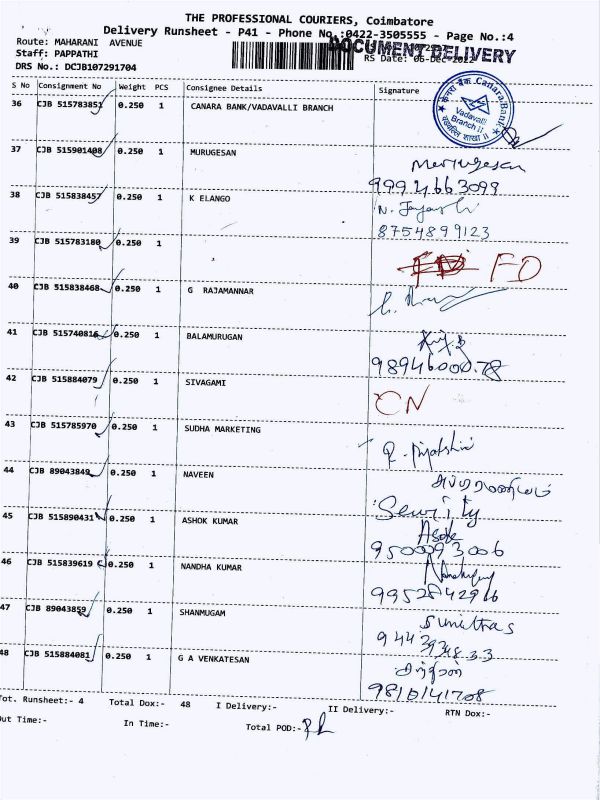 THE PROFESSIONAL COURIERS, Coimbatore
Delivery Runsheet - P41 - Phone No.:0422-3505555 - Page No.:4
Route: MAHARANI AVENUE
DOCUMENT DELIVERY
Staff: PAPPATHI
RS Date: 06-Dec-2022
DRS No.: DCJB107291704
S No Consignment No Weight PCS Consignee Details Signature
36 CJB 515783851 0.250 1 CANARA BANK/VADAVALLI BRANCH
केनरा बैंक Canara Bank
Vadavalli
Branch II
37 CJB 515901408 0.250 1 MURUGESAN Murugesan
9994663099
38 CJB 515838457 0.250 1 K ELANGO
8754899123
39 CJB 515783180 0.250 1 FD
40 CJB 515838468 0.250 1 G RAJAMANNAR
41 CJB 515740816 0.250 1 BALAMURUGAN
42 CJB 515884079 0.250 1 SIVAGAMI CN
43 CJB 515785970 0.250 1 SUDHA MARKETING
44 CJB 89043849 0.250 1 NAVEEN
45 CJB 515890431 0.250 1 ASHOK KUMAR
9500093006
46 CJB 515839619 0.250 1 NANDHA KUMAR
9952842916
47 CJB 89043859 0.250 1 SHANMUGAM
48 CJB 515884081 0.250 1 G A VENKATESAN
Tot. Runsheet:- 4 Total Dox:- 48 I Delivery:- II Delivery:- RTN Dox:-
Out Time:- In Time:- Total POD:-